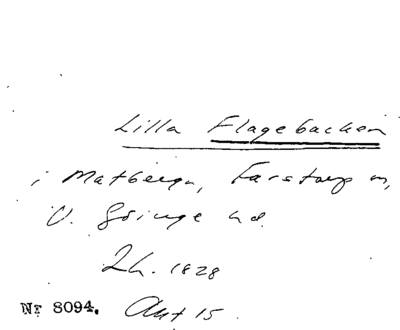 Lilla Flagebacken
i Matbergn, Farstorp sn,
V. Göinge hd.
Lh. 1828
Nr 8094. Akt 15